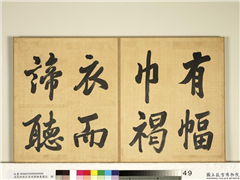 有幅
巾褐
衣而
諦聽
49
國立故宮博物院